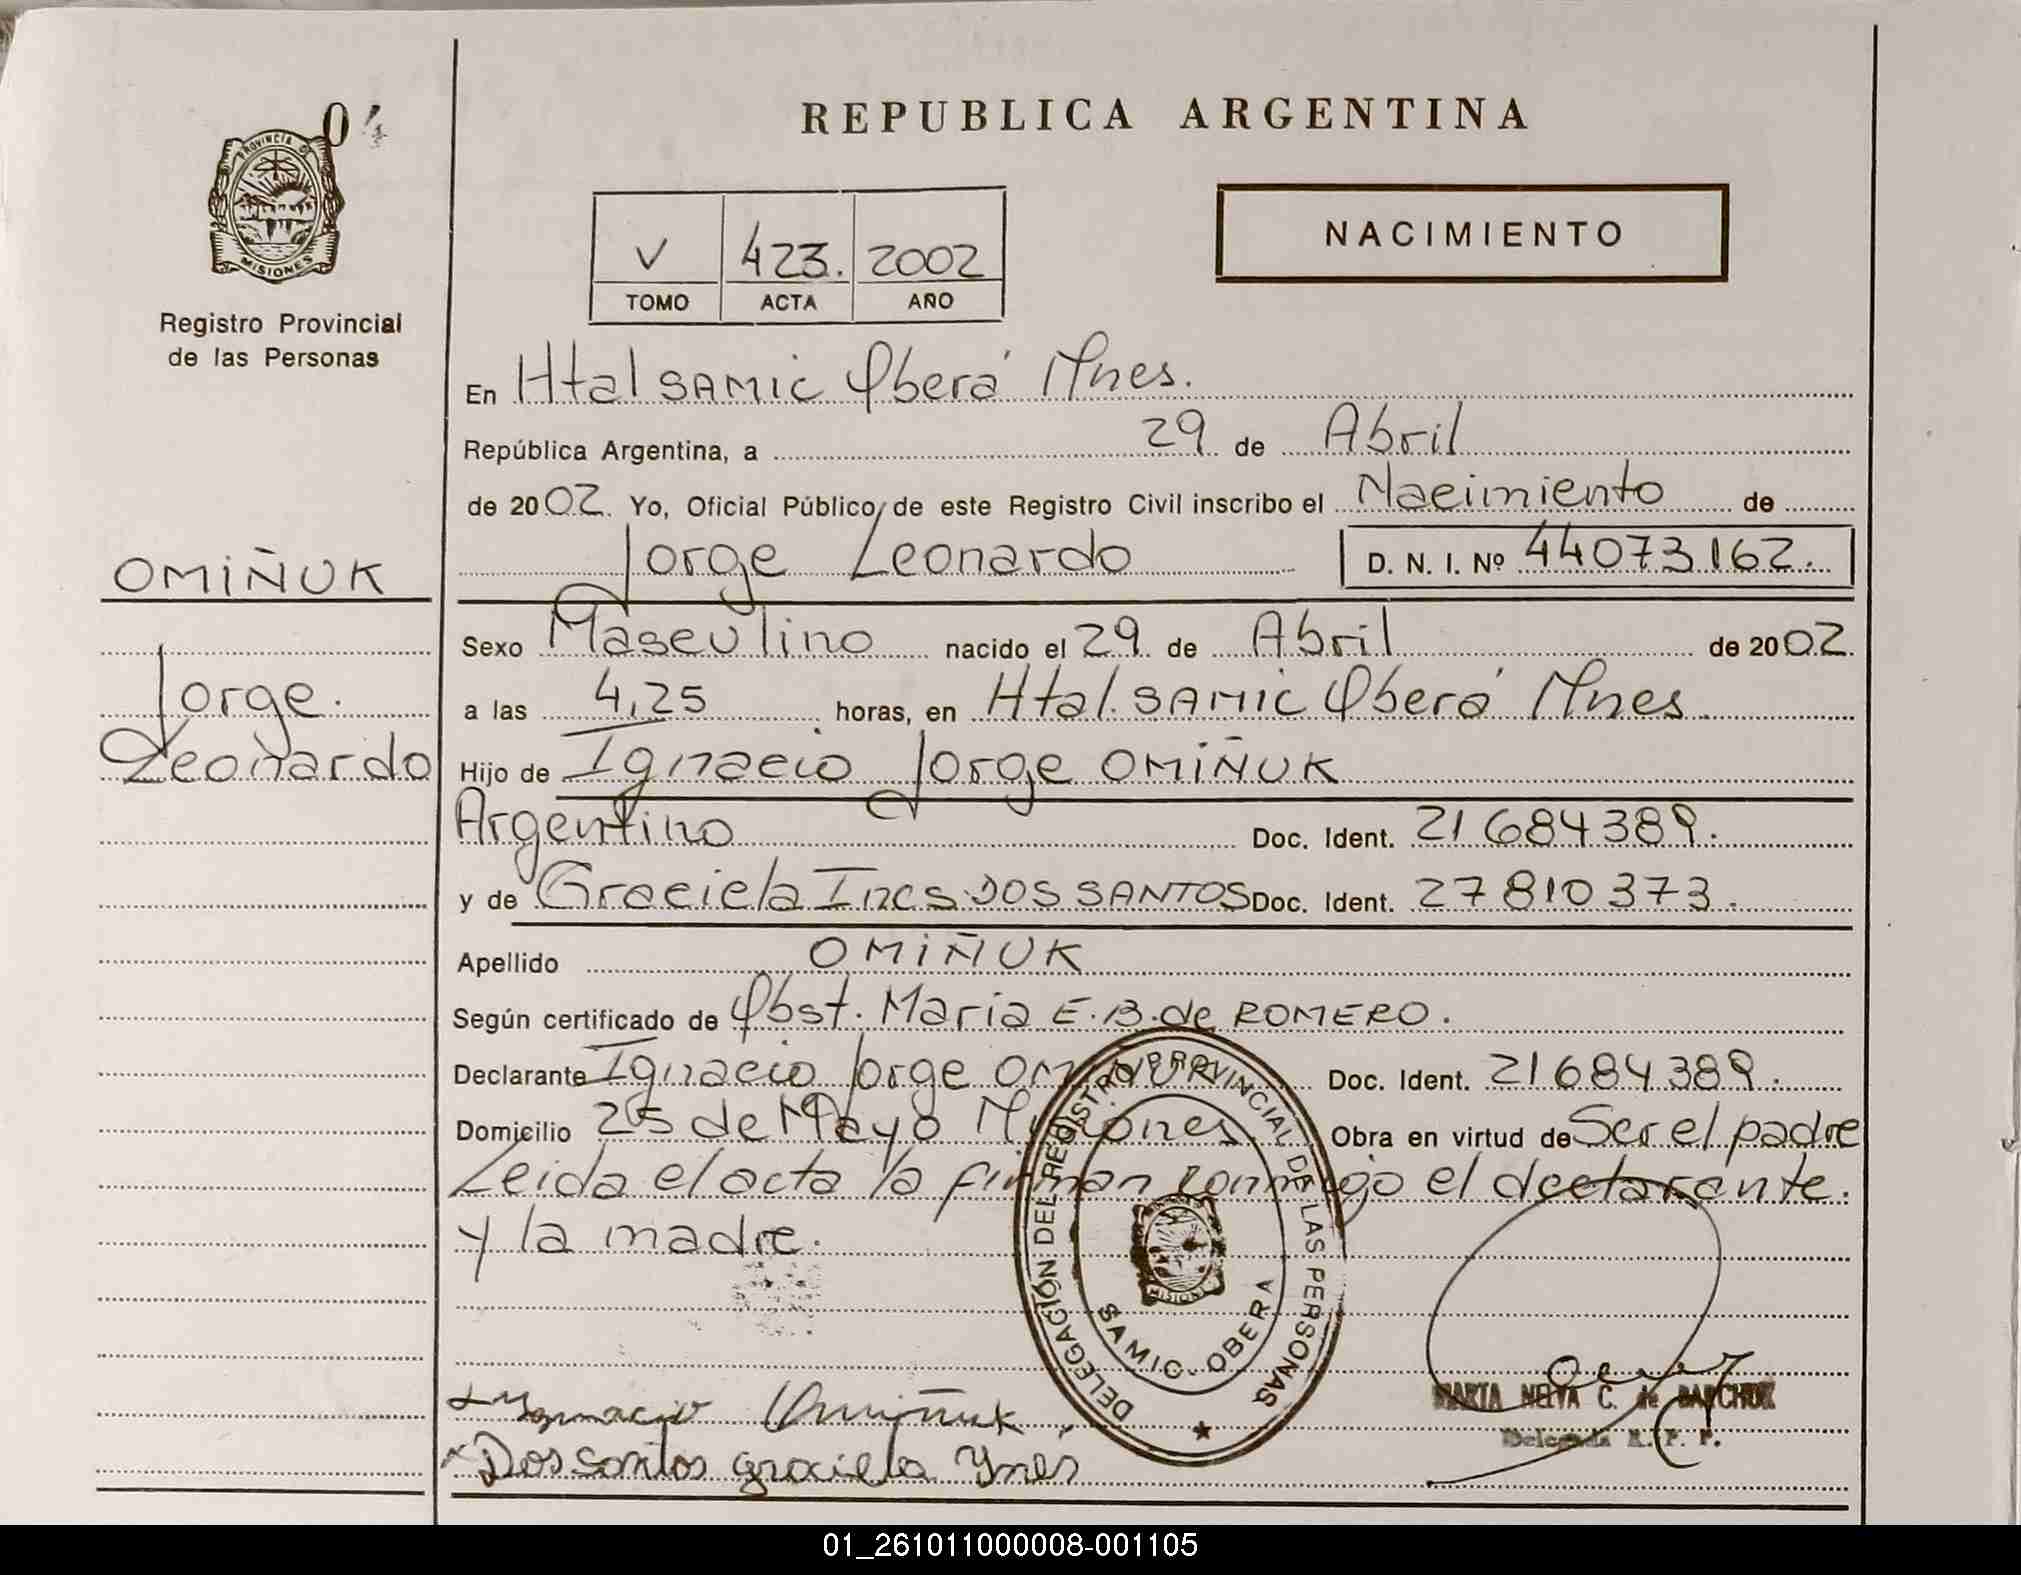 04
PROVINCIA DE
MISIONES
Registro Provincial
de las Personas
OMIÑUK
Jorge.
Leonardo
REPUBLICA ARGENTINA
V 423. 2002
TOMO ACTA AÑO
NACIMIENTO
En Htal SAMIC Oberá Mnes.
República Argentina, a 29 de Abril
de 2002. Yo, Oficial Público, de este Registro Civil inscribo el Nacimiento de
Jorge Leonardo D. N. I. Nº 44073162.
Sexo Masculino nacido el 29 de Abril de 2002.
a las 4,25 horas, en Htal. SAMIC Oberá Mnes
Hijo de Ignacio Jorge OMIÑUK
Argentino Doc. Ident. 21684389.
y de Graciela Ines DOS SANTOS Doc. Ident. 27810373.
Apellido OMIÑUK
Según certificado de Obst. Maria E.B. de ROMERO.
Declarante Ignacio Jorge OMIÑUK Doc. Ident. 21684389.
Domicilio 25 de Mayo Misiones Obra en virtud de Ser el padre
Leida el acta la firman conmigo el declarante.
y la madre.
DELEGACIÓN DEL REGISTRO PROVINCIAL DE LAS PERSONAS
MISIONES
SAMIC. OBERA
Ygnacio Omiñuk
Dos santos graciela Ynés
MARTA NELVA C. de
Delegada R. P. P.
01_261011000008-001105